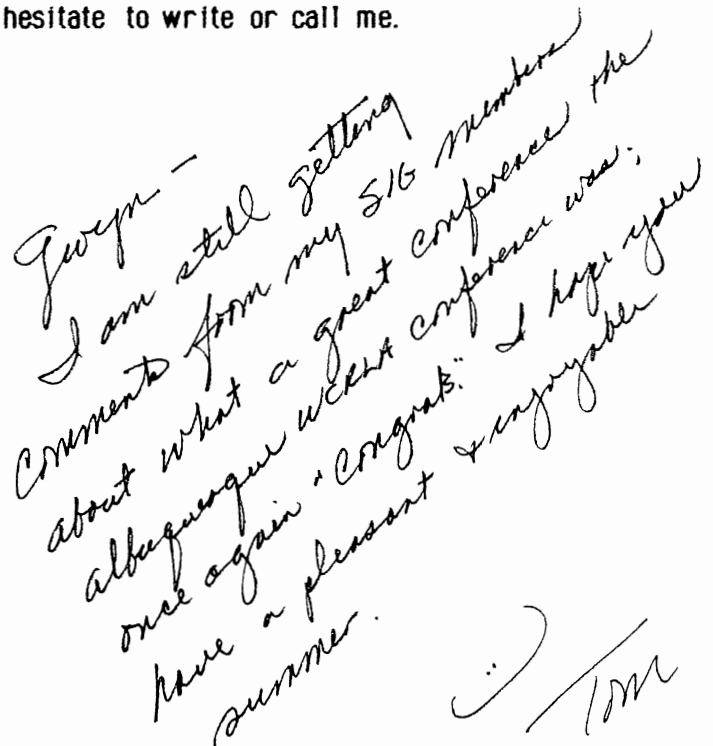 hesitate to write or call me.
Gwyn -
I am still getting
comments from my SIG members
about what a great conference the
albuquerque WCRLA conference was;
once again "congrats." I hope you
have a pleasant & enjoyable
summer.
Tom